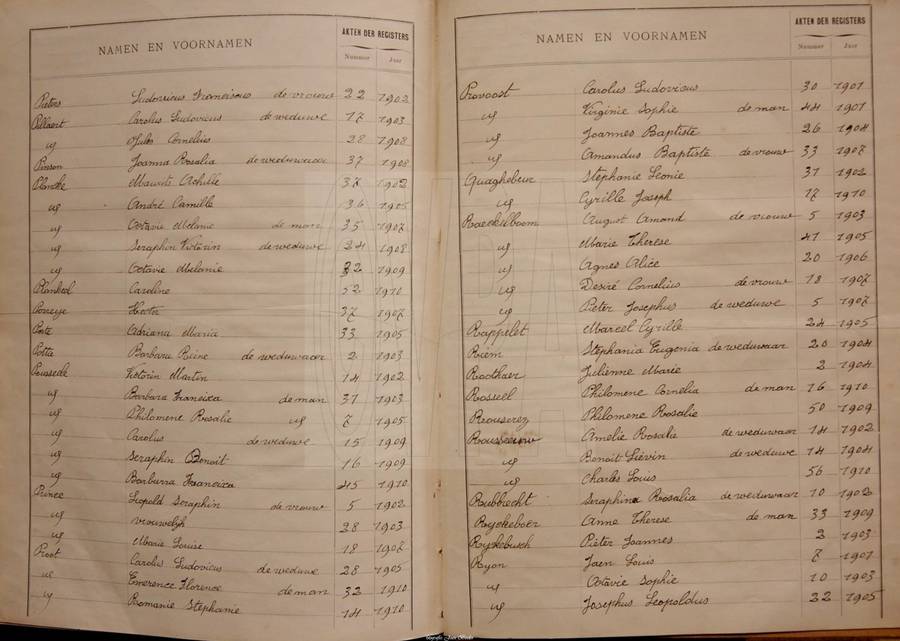 NAMEN EN VOORNAMEN AKTEN DER REGISTERS
Nummer Jaar
Pieters Ludovicus Franciscus de vrouw 22 1902
Pillaert Carolus Ludovicus de weduwe 17 1903
id Jules Cornelius 28 1908
Pinson Joanna Rosalia de weduwaar 37 1908
Plancke Maurits Achille 37 1902
id André Camille 36 1905
id Octavie Melanie de man 35 1907
id Seraphin Victorin de weduwe 24 1908
id Octavie Melanie 32 1909
Plankeel Caroline 52 1910
Poneye Hector 37 1907
Porte Adriana Maria 33 1905
Potta Barbara Reine de weduwaar 2 1903
Poussele Victorin Martin 14 1902
id Barbara Francisca de man 31 1903
id Philomene Rosalie id 7 1905
id Carolus de weduwe 15 1909
id Seraphin Benoit 16 1909
id Barbara Francisca 45 1910
Prince Leopold Seraphin de vrouw 5 1902
id vrouwelijk 28 1903
id Marie Louise 18 1907
Proot Carolus Ludovicus de weduwe 28 1905
id Emerence Florence de man 32 1910
id Romanie Stephanie 14 1910
NAMEN EN VOORNAMEN AKTEN DER REGISTERS
Nummer Jaar
Provoost Carolus Ludovicus 30 1901
id Virginie Sophie de man 44 1901
id Joannes Baptiste 26 1904
id Amandus Baptiste de vrouw 33 1907
Quaghebeur Stephanie Leonie 31 1902
id Cyrille Joseph 17 1910
Raeckelboom August Amand de vrouw 5 1903
id Marie Therese 41 1905
id Agnes Alice 20 1906
id Desiré Cornelius de vrouw 18 1907
id Pieter Josephus de weduwe 5 1907
Rappelet Marcel Cyrille 24 1905
Riem Stephania Eugenia de weduwaar 20 1904
Roothaer Julienne Marie 2 1904
Rosseel Philomene Cornelia de man 16 1910
Rouserez Philomene Rosalie 50 1909
Rousseeuw Amelie Rosalia de weduwaar 14 1902
id Benoit Liévin de weduwe 14 1904
id Charles Louis 56 1910
Rubbrecht Seraphina Rosalia de weduwaar 10 1902
Ryckeboer Anne Therese de man 33 1909
Ryckebusch Pieter Joannes 2 1903
Ryon Jaen Louis 7 1901
id Octavie Sophie 10 1903
id Josephus Leopoldus 22 1905